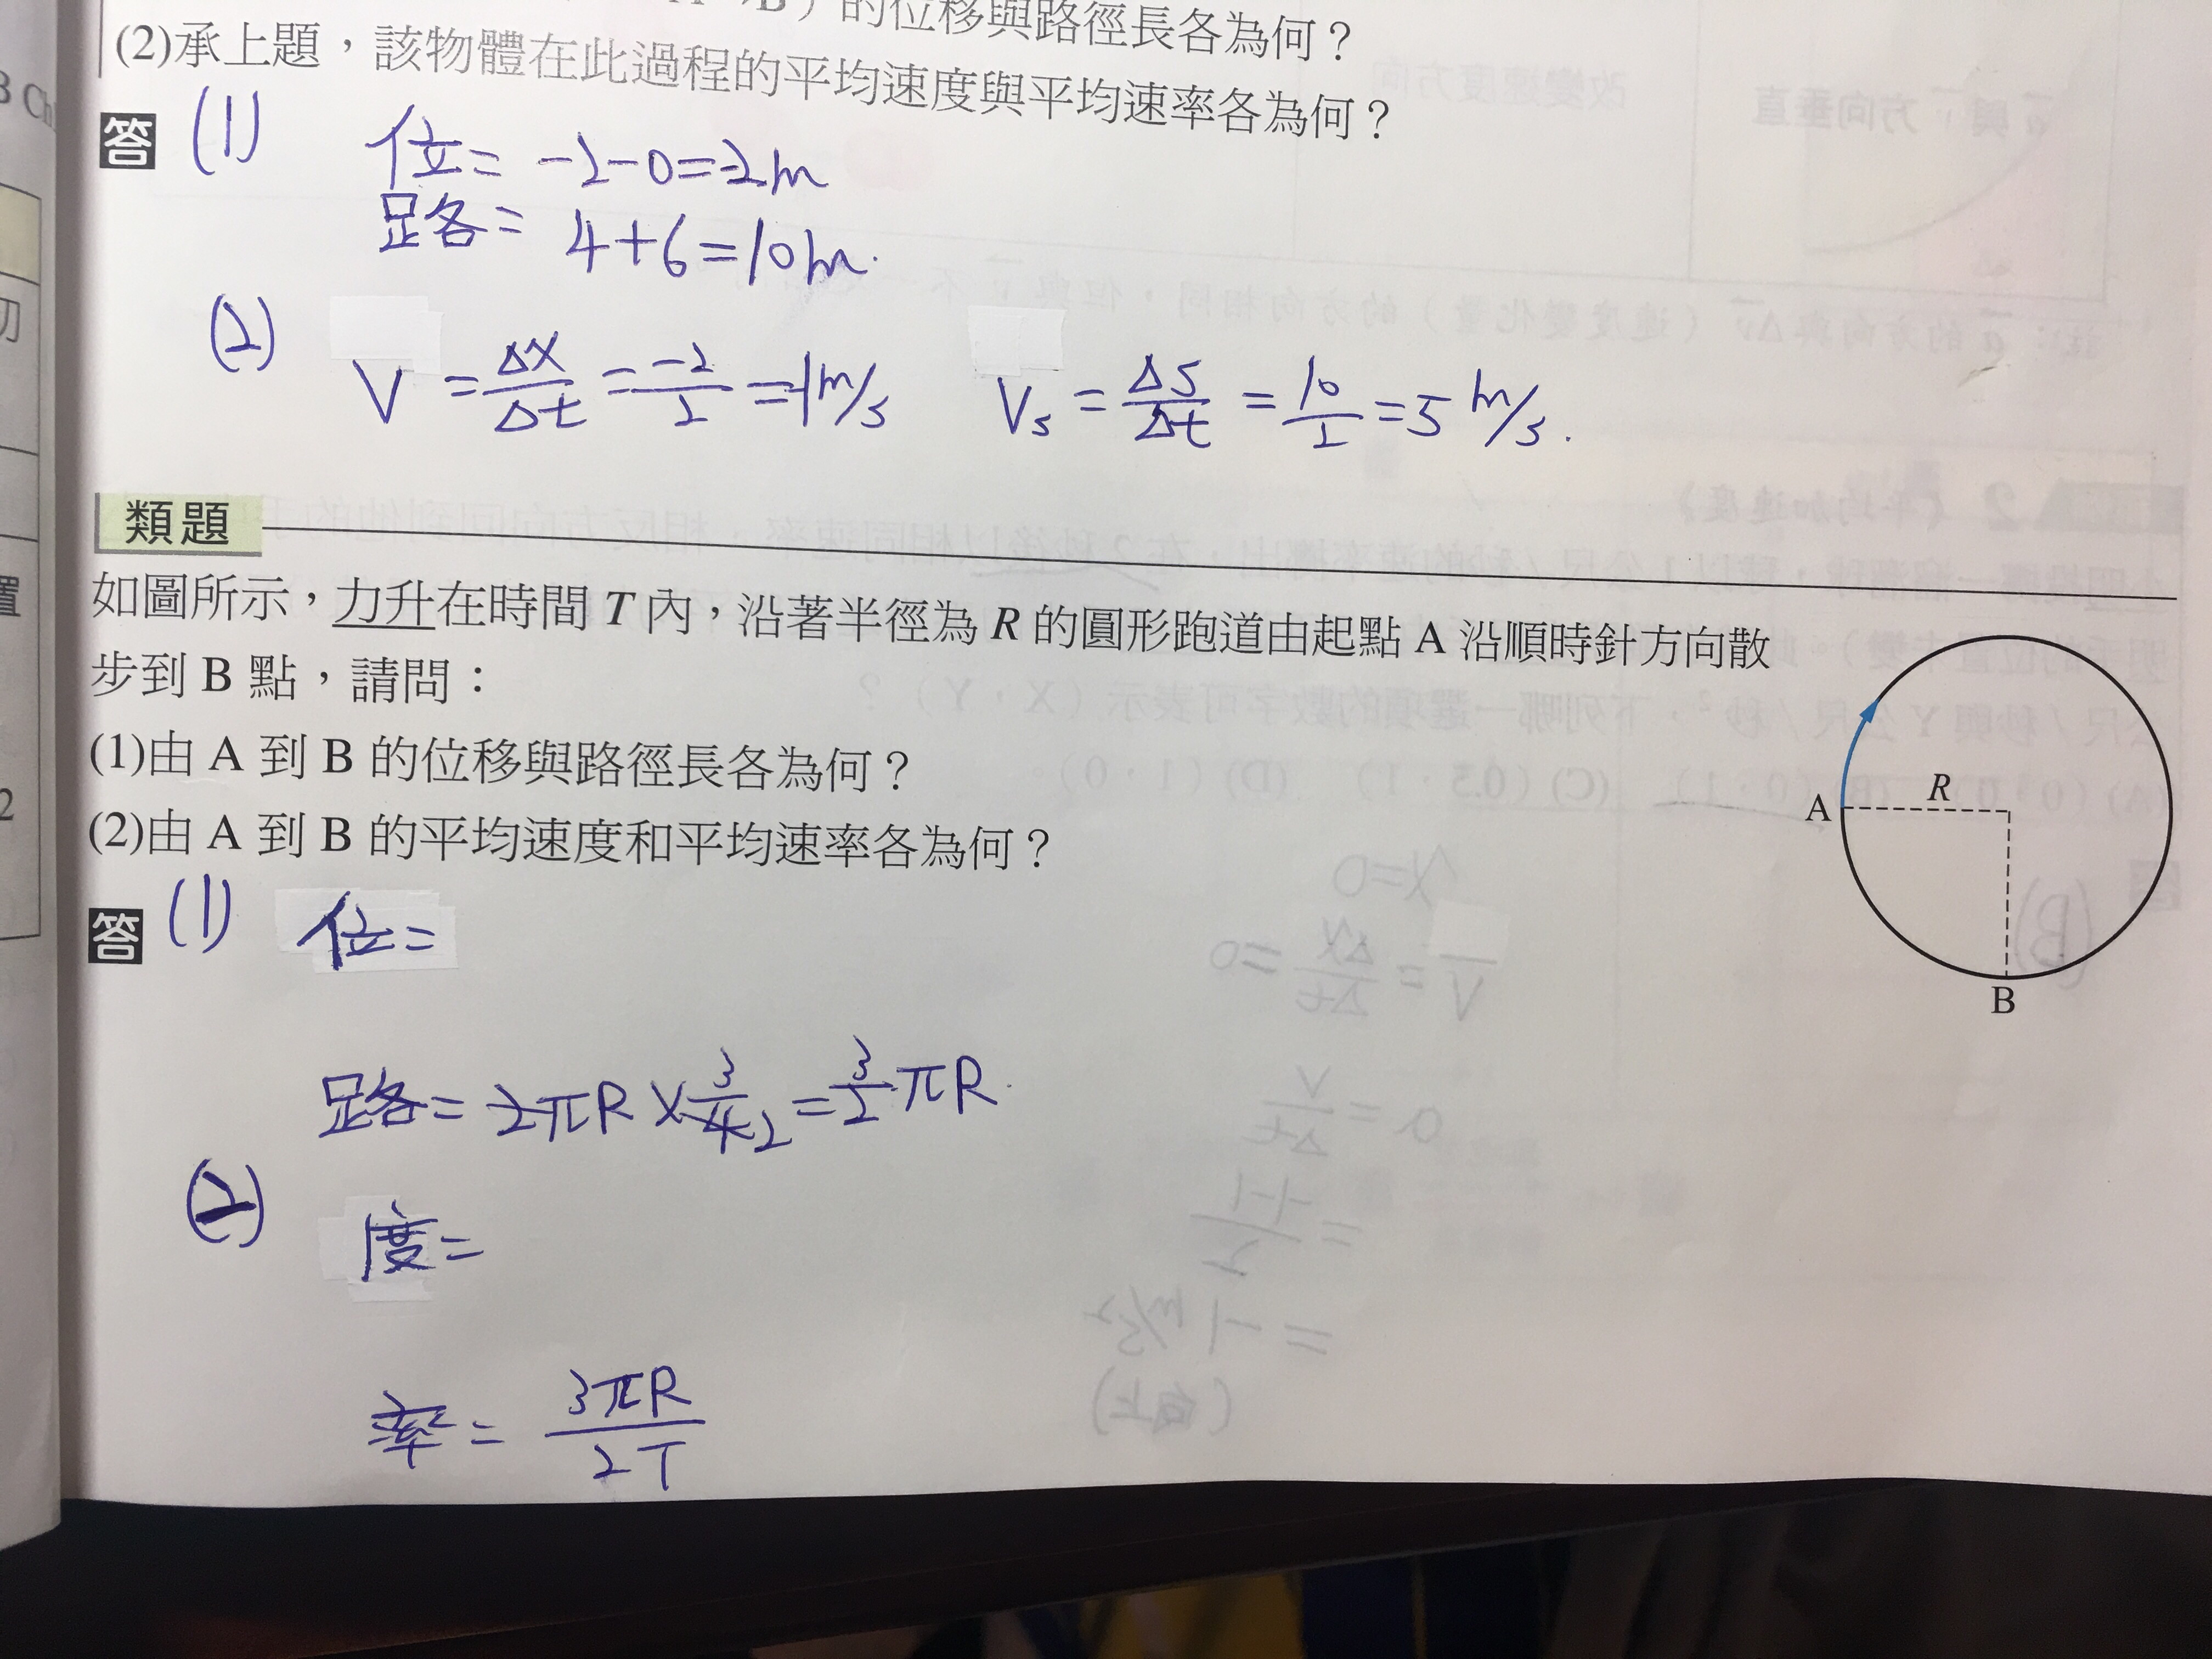 B）的位移與路徑長各為何？
(2)承上題，該物體在此過程的平均速度與平均速率各為何？
答 (1) 位= -2-0=-2m
路= 4+6=10m.
(2) V = ΔX/Δt = -2/2 = -1 m/s Vs = ΔS/Δt = 10/2 = 5 m/s.
類題
如圖所示，力升在時間 T 內，沿著半徑為 R 的圓形跑道由起點 A 沿順時針方向散
步到 B 點，請問：
(1)由 A 到 B 的位移與路徑長各為何？
(2)由 A 到 B 的平均速度和平均速率各為何？
A
R
B
答 (1) 位=
路= 2πR × 3/4 2 = 3/2 πR
(2) 度=
率= 3πR/2T